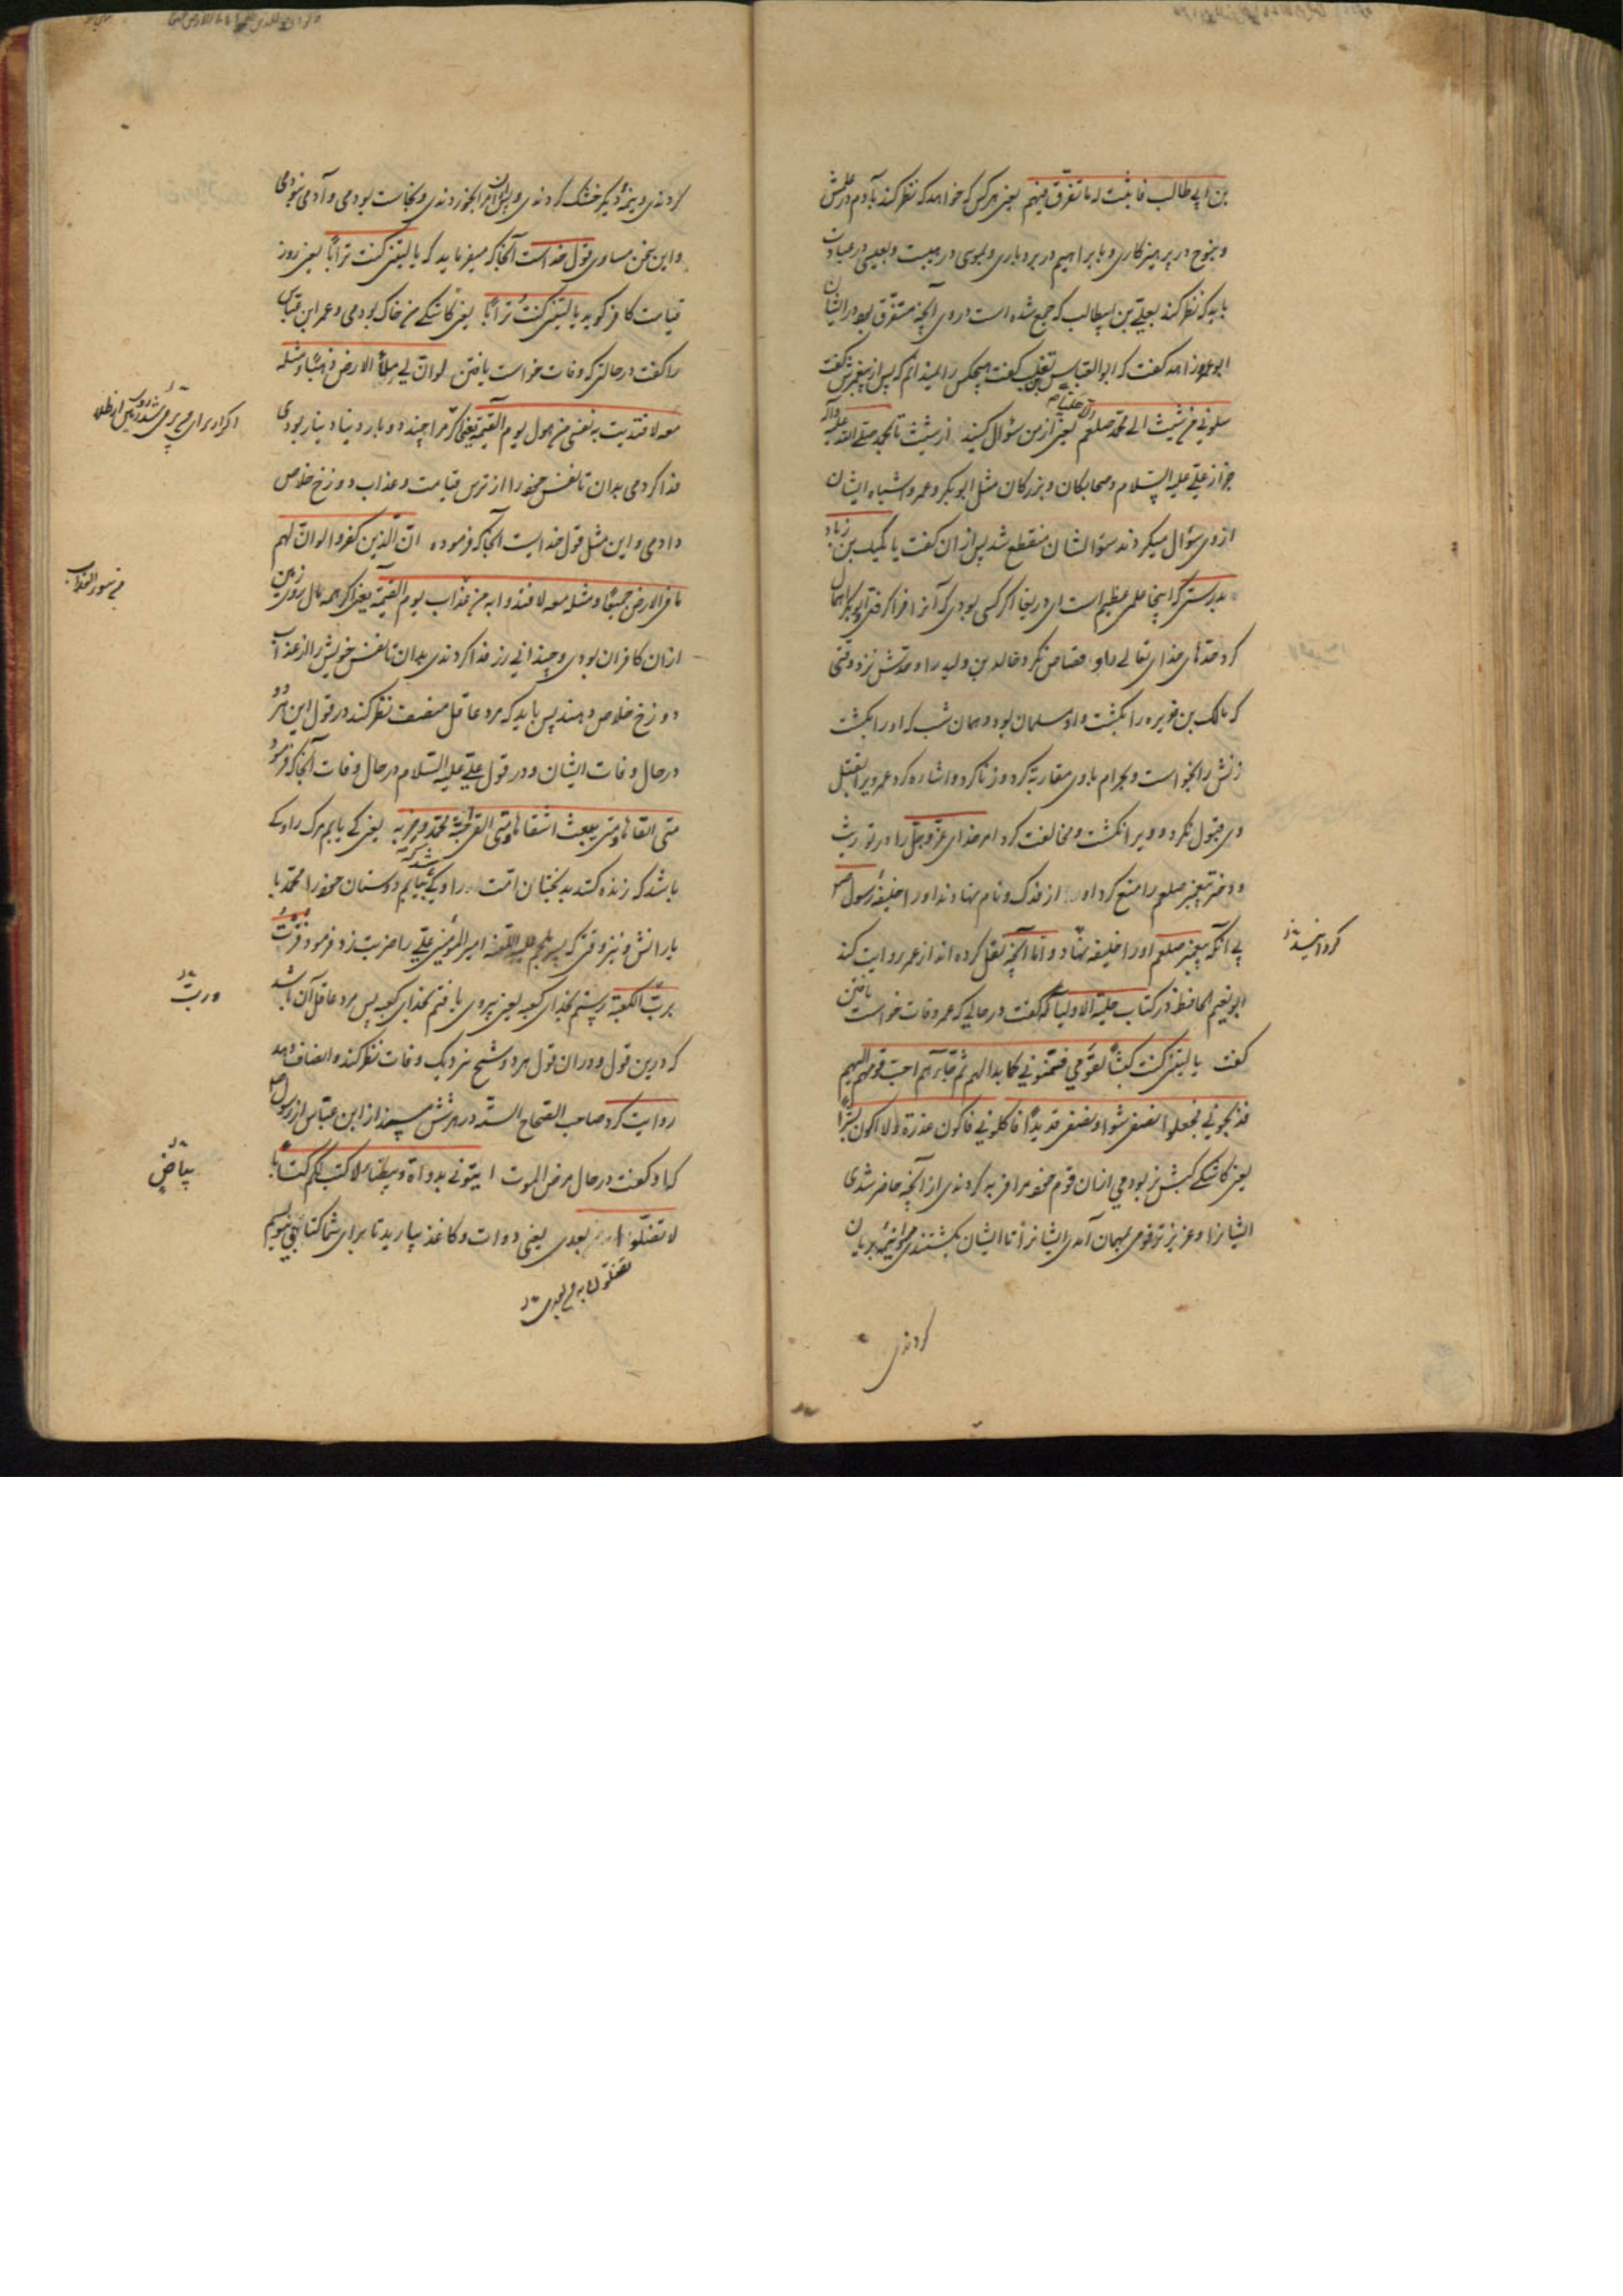 بن ابی طالب فا ثبت له ما تفرّق فیهم یعنی هر کس که خواهد که نظر کند بآدم در علمش
و بنوح در پرهیزکاری و بابراهیم در بردباری و بموسی در هیبت و بعیسی در عبادت
باید که نظر کند بعلی بن ابیطالب که جمع شده است در وی آنچه متفرّق بود در ایشان
ابو عمرو زاهد گفت که ابو العباس تغلب گفت هیچکس را نمیدانم که پس از پیغمبرش گفت
سلونی من شیث الی محمد صلعم یعنی از من سؤال کنید از شیث تا بمحمد صلی الله علیه وآله
جز از علی علیه السلام و صحابکان و بزرکان مثل ابوبکر و عمر و اشباه ایشان
از وی سؤال میکردند سؤالشان منقطع شد پس از آن گفت یا کمیل بن زیاد
بدرستی که اینجا علمی عظیم است ای دریغا اگر کسی بودی که آنرا فرا گرفتی ابوبکر اهمال
کرد حدّهای خدای تعالی را و قصاص نکرد خالد بن ولید را و حدّش نزد وقتی
که مالک بن نویره را بکشت و او مسلمان بود و همان شب که او را بکشت
زنش را بخواست و بحرام با وی مقاربة کرد و زنا کرد و اشاره کرد عمر ویرا بقتل
وی قبول نکرد و ویرا نکشت و مخالفت کرد امر خدای عزّ وجلّ را در توریث
و دختر پیغمبر صلعم را منع کرد از فدک و نام نهادند او را خلیفهٔ رسول
بی آنکه پیغمبر صلعم او را خلیفه نهاد و امّا آنچه نقل کرده اند از عمر روایت کند
کردانیده
ابو نعیم الحافظ در کتاب حلیة الاولیا که گفت در حالی که عمر وفات خواست یافتن
گفت یا لیتنی کنت کبشًا لقومی فسمّنونی کما بدا لهم ثم جاءهم احبّ قومهم الیهم
فذبحونی فجعلوا نصفی شواء و نصفی قدیدًا فاکلونی فاکون عذرة و لا اکون بشرًا
یعنی کاشکی کبش نر بودمی انسان قوم خود مرا فربه کردندی از آنچه حاضر شدی
ایشانرا و عزیز تر قومی بمهمان آمدی ایشانرا تا ایشان بکشتندی مرا و نیمهٔ بریان
کردندی
کردندی و نیمهٔ دیگر خشک کردندی و پس مرا بخوردندی و نجاست بودمی و آدمی نبودمی
و این سخن مساوی قول خداست آنجا که میفرماید که یا لیتنی کنت ترابًا یعنی روز
قیامت کافر گوید یا لیتنی کنت ترابًا یعنی کاشکی من خاک بودمی و عمر ابن عباس
را گفت در حالتی که وفات خواست یافتن لو انّ لی ملأ الارض ذهبًا و مثله
معه لافتدیت به نفسی من هول یوم القیمة یعنی اگر مرا چند دو بار دنیا دینار بودی
فدا کردمی بدان تا نفس خود را از ترس قیامت و عذاب دوزخ خلاص
دادمی و این مثل قول خدایست آنجا که فرموده انّ الّذین کفروا لو انّ لهم
ما فی الارض جمیعًا و مثله معه لافتدوا به من عذاب یوم القیمة یعنی اگر همه مال روی زمین
من سوء العذاب
از آن کافران بودی و چندانی زر فدا کردندی بدان تا نفس خویش را از عذاب
دوزخ خلاص دهند پس باید که مرد عاقل منصف نظر کند در قول این هر دو
در حال وفات ایشان و در قول علی علیه السلام در حال وفات آنجا که فرمود
متی القاها و متی یبعث اشقاها و متی القی الاحبّة محمد و حزبه یعنی کی یابم مرگ را و کی
باشد که زنده کند بدبختان امّت را و کی باشد که بیابم دوستان خود را محمد با
یارانش و نیز وقتی که پسر ملجم علیه اللعنه امیر المؤمنین علی را ضربت زد فرمود فزت
بربّ الکعبة رستم بخدای کعبه یعنی پیروی یافتم بخدای کعبه پس مرد عاقل آن باشد
و ربّ
که درین قول و در آن قول هر دو شیخ نزدیک وفات نظر کند و انصاف دهد
روایت کرد صاحب الصحاح الستّه در هر شش مسند از ابن عباس از رسول
که او گفت در حال مرض الموت ایتونی بدواة و بیضاء لاکتب لکم کتابًا
بیاض
لا تضلّوا بعدی یعنی دوات و کاغذ بیارید تا برای شما کتابی بنویسم